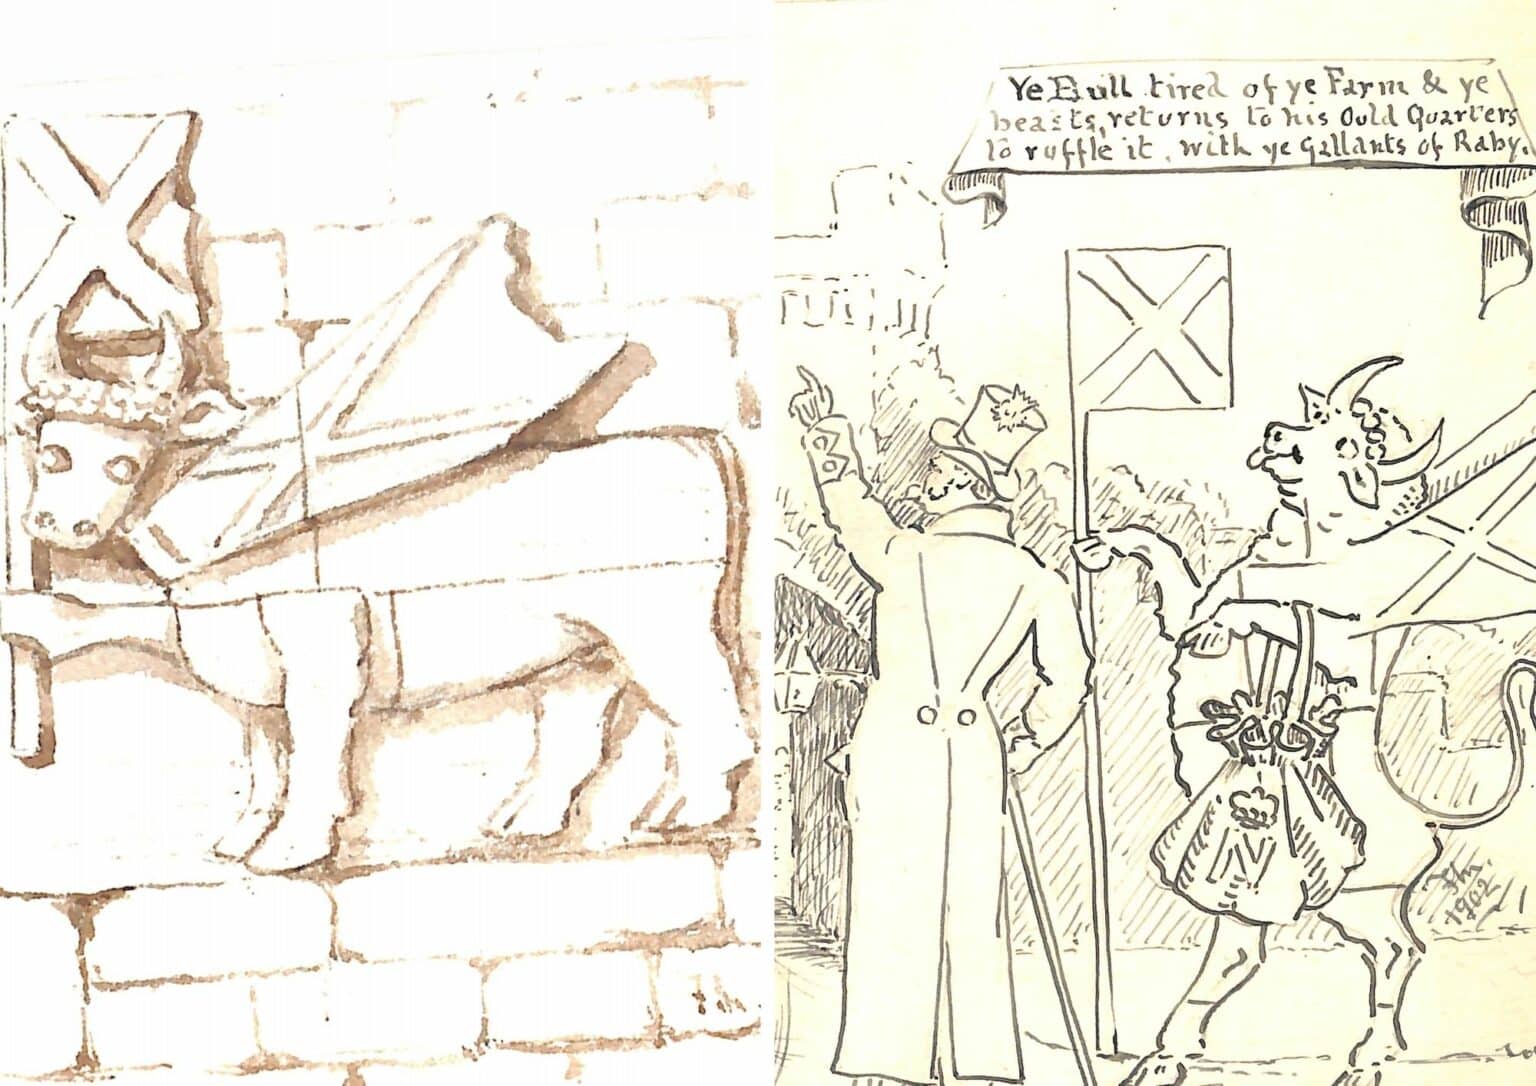 Ye Bull tired of ye Farm & ye
beasts, returns to his Ould Quarters
To ruffle it, with ye Gallants of Raby.
N
1902